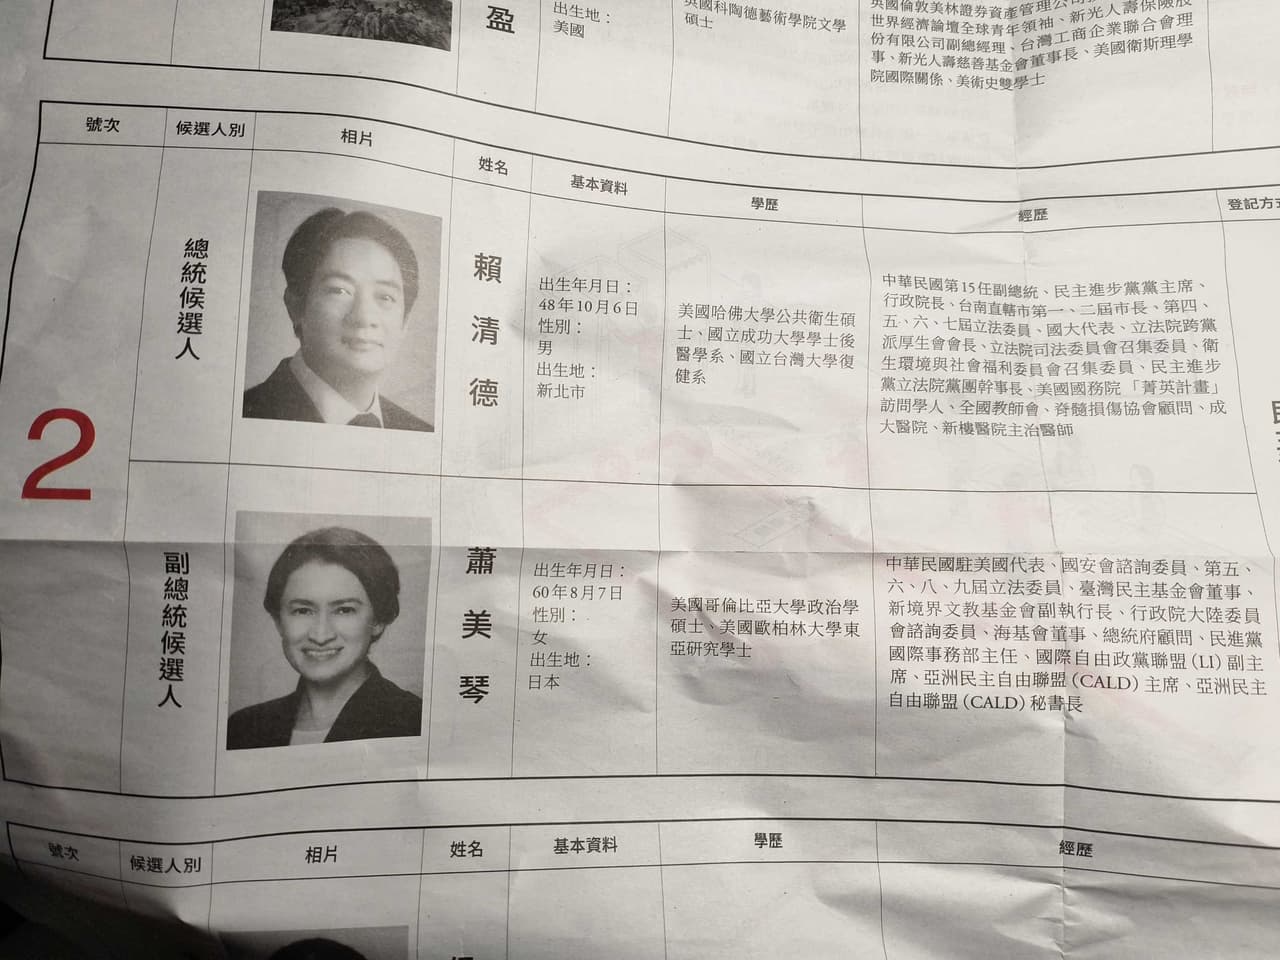 盈
出生地：
美國
英國科陶德藝術學院文學
碩士
英國倫敦美林證券資產管理公司
世界經濟論壇全球青年領袖、新光人壽保險股
份有限公司副總經理、台灣工商企業聯合會理
事、新光人壽慈善基金會董事長、美國衛斯理學
院國際關係、美術史雙學士
號次
候選人別
相片
姓名
基本資料
學歷
經歷
登記方式
2
總統候選人
賴清德
出生年月日：
48年10月6日
性別：
男
出生地：
新北市
美國哈佛大學公共衛生碩
士、國立成功大學學士後
醫學系、國立台灣大學復
健系
中華民國第15任副總統、民主進步黨黨主席、
行政院長、台南直轄市第一、二屆市長、第四、
五、六、七屆立法委員、國大代表、立法院跨黨
派厚生會會長、立法院司法委員會召集委員、衛
生環境與社會福利委員會召集委員、民主進步
黨立法院黨團幹事長、美國國務院「菁英計畫」
訪問學人、全國教師會、脊髓損傷協會顧問、成
大醫院、新樓醫院主治醫師
副總統候選人
蕭美琴
出生年月日：
60年8月7日
性別：
女
出生地：
日本
美國哥倫比亞大學政治學
碩士、美國歐柏林大學東
亞研究學士
中華民國駐美國代表、國安會諮詢委員、第五、
六、八、九屆立法委員、臺灣民主基金會董事、
新境界文教基金會副執行長、行政院大陸委員
會諮詢委員、海基會董事、總統府顧問、民進黨
國際事務部主任、國際自由政黨聯盟（LI）副主
席、亞洲民主自由聯盟（CALD）主席、亞洲民主
自由聯盟（CALD）秘書長
號次
候選人別
相片
姓名
基本資料
學歷
經歷